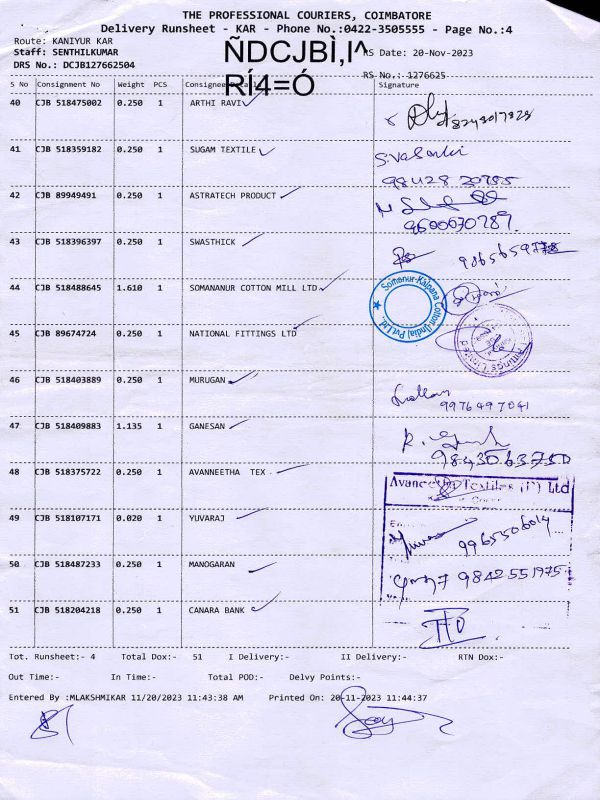 THE PROFESSIONAL COURIERS, COIMBATORE
Delivery Runsheet - KAR - Phone No.:0422-3505555 - Page No.:4
Route: KANIYUR KAR
Staff: SENTHILKUMAR
RS Date: 20-Nov-2023
DRS No.: DCJB127662504
ÑDCJBÌ,I^
RÍ4=Ó
RS No.: 1276625
S No Consignment No Weight PCS Consignee Signature
40 CJB 518475002 0.250 1 ARTHI RAVI
8248017828
41 CJB 518359182 0.250 1 SUGAM TEXTILE
S.Vasanki
98428 20785
42 CJB 89949491 0.250 1 ASTRATECH PRODUCT
9600670789
43 CJB 518396397 0.250 1 SWASTHICK
9865659778
44 CJB 518488645 1.610 1 SOMANANUR COTTON MILL LTD
Somanur-Kalpana Cotton (India) Pvt.Ltd.
45 CJB 89674724 0.250 1 NATIONAL FITTINGS LTD
Fittings Limited
46 CJB 518403889 0.250 1 MURUGAN
9976497041
47 CJB 518409883 1.135 1 GANESAN
9843063750
48 CJB 518375722 0.250 1 AVANNEETHA TEX
Avaneetha Textiles (P) Ltd
49 CJB 518107171 0.020 1 YUVARAJ
9965506014
50 CJB 518487233 0.250 1 MANOGARAN
9842551975
51 CJB 518204218 0.250 1 CANARA BANK
Tot. Runsheet:- 4 Total Dox:- 51 I Delivery:- II Delivery:- RTN Dox:-
Out Time:- In Time:- Total POD:- Delvy Points:-
Entered By :MLAKSHMIKAR 11/20/2023 11:43:38 AM Printed On: 20-11-2023 11:44:37